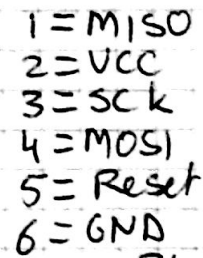 1 = MISO
2 = VCC
3 = SCK
4 = MOSI
5 = Reset
6 = GND